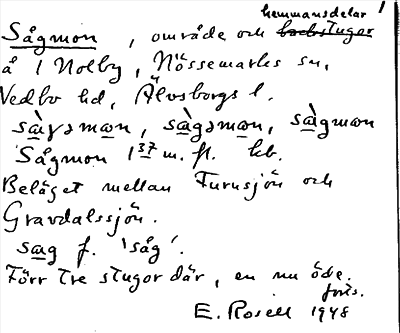 hemmansdelar
Sågmon, område och backstugor
å 1 Nolby, Nössemarks sn,
Vedbo hd, Älvsborgs l.
sàgsmɷn, sàgsmɷn, sàgmɷn
Sågmon 1737 m. fl. kb.
Beläget mellan Furusjön och
Gravdalssjön.
sag f. 'såg'.
Förr tre stugor där, en nu öde.
forts.
E. Rosell 1948